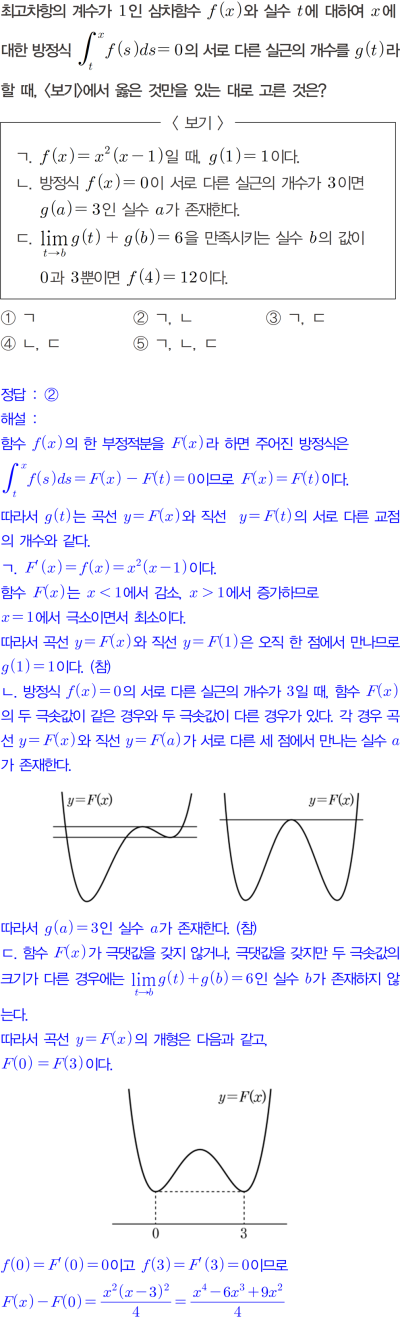 최고차항의 계수가 1인 삼차함수 f(x)와 실수 t에 대하여 x에
대한 방정식 ∫_t^x f(s)ds=0의 서로 다른 실근의 개수를 g(t)라
할 때, <보기>에서 옳은 것만을 있는 대로 고른 것은?
< 보기 >
ㄱ. f(x)=x²(x-1)일 때, g(1)=1이다.
ㄴ. 방정식 f(x)=0이 서로 다른 실근의 개수가 3이면
g(a)=3인 실수 a가 존재한다.
ㄷ. lim_{t→b} g(t)+g(b)=6을 만족시키는 실수 b의 값이
0과 3뿐이면 f(4)=12이다.
① ㄱ ② ㄱ, ㄴ ③ ㄱ, ㄷ
④ ㄴ, ㄷ ⑤ ㄱ, ㄴ, ㄷ
정답 : ②
해설 :
함수 f(x)의 한 부정적분을 F(x)라 하면 주어진 방정식은
∫_t^x f(s)ds=F(x)-F(t)=0이므로 F(x)=F(t)이다.
따라서 g(t)는 곡선 y=F(x)와 직선 y=F(t)의 서로 다른 교점
의 개수와 같다.
ㄱ. F′(x)=f(x)=x²(x-1)이다.
함수 F(x)는 x<1에서 감소, x>1에서 증가하므로
x=1에서 극소이면서 최소이다.
따라서 곡선 y=F(x)와 직선 y=F(1)은 오직 한 점에서 만나므로
g(1)=1이다. (참)
ㄴ. 방정식 f(x)=0의 서로 다른 실근의 개수가 3일 때, 함수 F(x)
의 두 극솟값이 같은 경우와 두 극솟값이 다른 경우가 있다. 각 경우 곡
선 y=F(x)와 직선 y=F(a)가 서로 다른 세 점에서 만나는 실수 a
가 존재한다.
y=F(x) y=F(x)
따라서 g(a)=3인 실수 a가 존재한다. (참)
ㄷ. 함수 F(x)가 극댓값을 갖지 않거나, 극댓값을 갖지만 두 극솟값의
크기가 다른 경우에는 lim_{t→b} g(t)+g(b)=6인 실수 b가 존재하지 않
는다.
따라서 곡선 y=F(x)의 개형은 다음과 같고,
F(0)=F(3)이다.
y=F(x)
0 3
f(0)=F′(0)=0이고 f(3)=F′(3)=0이므로
F(x)-F(0)=x²(x-3)²/4=(x⁴-6x³+9x²)/4